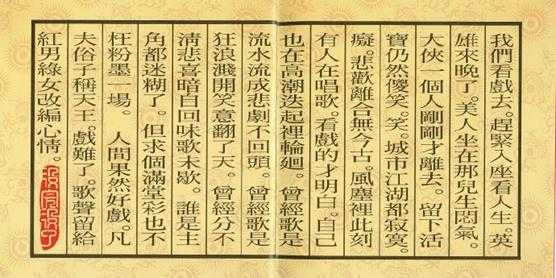 我們看戲去。趕緊入座看人生。英
雄來晚了。美人坐在那兒生悶氣。
大俠一個人剛剛才離去。留下活
寶仍然傻笑。笑。城市江湖都寂寞。
癡。悲歡離合無今古。風塵裡此刻
有人在唱歌。看戲的才明白。自己
也在高潮迭起裡輪迴。曾經歌是
流水流成悲劇不回頭。曾經歌是
狂浪濺開笑意翻了天。曾經分不
清悲喜暗自回味歌未歇。誰是主
角都迷糊了。但求個滿堂彩也不
枉粉墨一場。 人間果然好戲。凡
夫俗子稱天王。戲難了。歌聲留給
紅男綠女改編心情。
沒完沒了